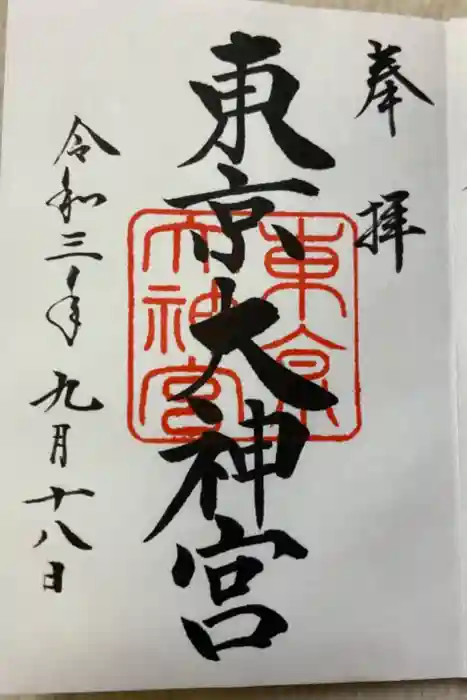 奉拝
東京大神宮
東京
大神宮
令和三年九月十八日